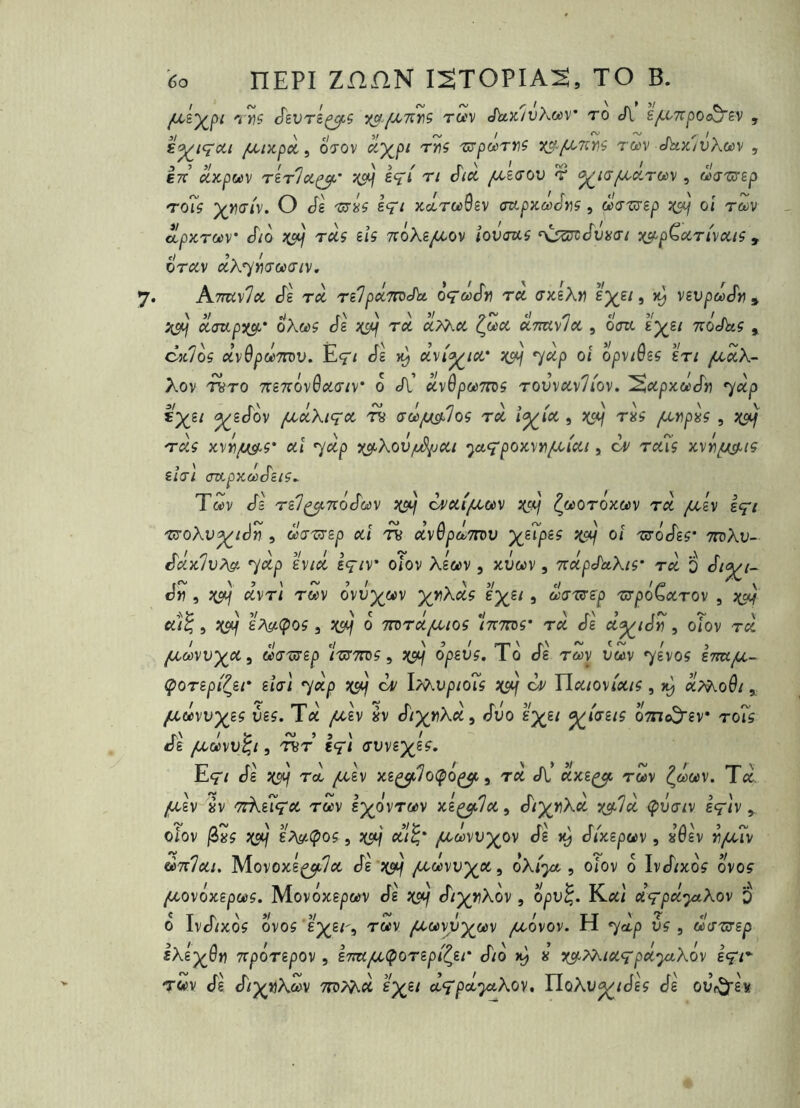 60 ΠΕΡΙ ΖΩΩΝ ΙΣΤΟΡΙΑΣ, ΤΟ Β.
μέχρι τῆς δευτέρας καμπῆς τῶν δακτύλων· τὸ δ' ἔμπροσθεν,
ἔσχισται μικρὰ, ὅσον ἄχρι τῆς πρώτης καμπῆς τῶν δακτύλων,
ἐπ' ἄκρων τέτταρα· καὶ ἐστί τι διὰ μέσου τ σχισμάτων, ὥσπερ
τοῖς χησίν. Ο δὲ ποὺς ἐστι κάτωθεν σαρκώδης, ὥσπερ καὶ οἱ τῶν
ἄρκτων· διὸ καὶ τὰς εἰς πόλεμον ἰούσας ὑποδυοῦσι καρβατίναις,
ὅταν ἀλγήσωσιν.
7. Απαντα δὲ τὰ τετράποδα ὀστώδη τὰ σκέλη ἔχει, καὶ νευρώδη,
καὶ ἄσαρκα· ὅλως δὲ καὶ τὰ ἄλλα ζῶα ἅπαντα, ὅσα ἔχει πόδας,
ἐκτὸς ἀνθρώπου. Εστι δὲ καὶ ἀνίσχια· καὶ γὰρ οἱ ὄρνιθες ἔτι μᾶλ-
λον τοῦτο πεπόνθασιν· ὁ δ' ἄνθρωπος τοὐναντίον. Σαρκώδη γὰρ
ἔχει σχεδὸν μάλιστα τοῦ σώματος τὰ ἰσχία, καὶ τοὺς μηροὺς, καὶ
τὰς κνήμας· αἱ γὰρ καλούμεναι γαστροκνημίαι, ἐν ταῖς κνήμαις
εἰσὶ σαρκώδεις.
Τῶν δὲ τετραπόδων καὶ ἐναίμων καὶ ζωοτόκων τὰ μὲν ἐστι
πολυσχιδῆ, ὥσπερ αἱ τοῦ ἀνθρώπου χεῖρες καὶ οἱ πόδες· πολυ-
δάκτυλα γὰρ ἔνιά ἐστιν· οἷον λέων, κύων, πάρδαλις· τὰ δὲ δισχι-
δῆ, καὶ ἀντὶ τῶν ὀνύχων χηλὰς ἔχει, ὥσπερ πρόβατον, καὶ
αἲξ, καὶ ἔλαφος, καὶ ὁ ποτάμιος ἵππος· τὰ δὲ ἀσχιδῆ, οἷον τὰ
μώνυχα, ὥσπερ ἵππος, καὶ ὀρεύς. Τὸ δὲ τῶν ὑῶν γένος ἐπαμ-
φοτερίζει· εἰσὶ γὰρ καὶ ἐν Ιλλυριοῖς καὶ ἐν Παιονίαις, καὶ ἄλλοθι,
μώνυχες ὕες. Τὰ μὲν οὖν διχηλὰ, δύο ἔχει σχίσεις ὄπισθεν· τοῖς
δὲ μώνυξι, τοῦτ' ἐστὶ συνεχές.
Εστι δὲ καὶ τὰ μὲν κερατοφόρα, τὰ δ' ἄκερα τῶν ζώων. Τὰ
μὲν οὖν πλεῖστα τῶν ἐχόντων κέρατα, διχηλὰ κατὰ φύσιν ἐστὶν,
οἷον βοῦς καὶ ἔλαφος, καὶ αἴξ· μώνυχον δὲ καὶ δίκερων, οὐθὲν ἡμῖν
ὦπται. Μονοκέρατα δὲ καὶ μώνυχα, ὀλίγα, οἷον ὁ Ινδικὸς ὄνος
μονόκερως. Μονόκερων δὲ καὶ διχηλὸν, ὄρυξ. Καὶ ἀστράγαλον δὲ
ὁ Ινδικὸς ὄνος ἔχει, τῶν μωνύχων μόνον. Η γὰρ ὗς, ὥσπερ
ἐλέχθη πρότερον, ἐπαμφοτερίζει· διὸ καὶ οὐ καλλιαστράγαλόν ἐστι·
τῶν δὲ διχηλῶν πολλὰ ἔχει ἀστράγαλον. Πολυσχιδὲς δὲ οὐθὲν